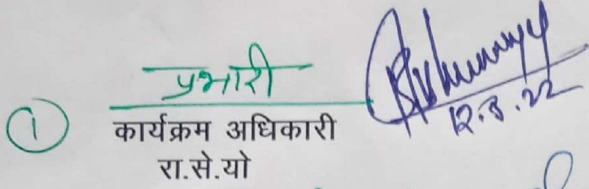 प्रभारी
① कार्यक्रम अधिकारी
रा.से.यो
12.8.22